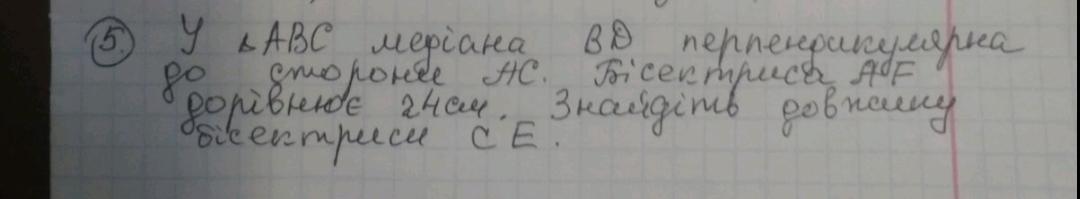 5. У ΔABC медіана BD перпендикулярна
до сторони AC. Бісектриса AF
дорівнює 24см. Знайдіть довжину
бісектриси CE.